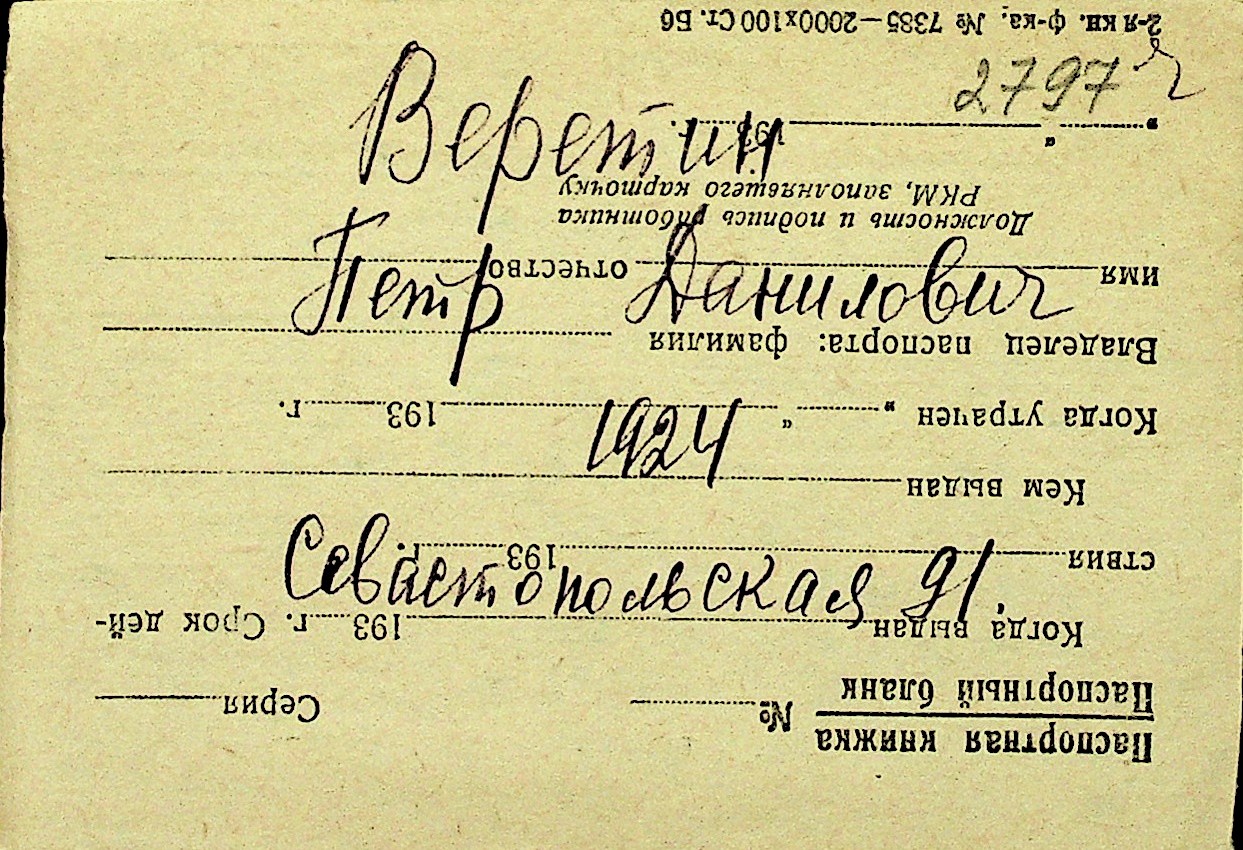 2797
Веретин
Петр Данилович
1924
Севастопольская 91.
Паспортная книжка
Паспортный бланк № Серия
Когда выдан 193 г. Срок дей-
ствия 193 г.
Кем выдан
Когда утрачен „ “ 193 г.
Владелец паспорта: фамилия
имя отчество
Должность и подпись работника
РКМ, заполнявшего карточку
„ “ 193 г.
2-я кн. ф-ка; № 7385—2000х100 Ст. Бб